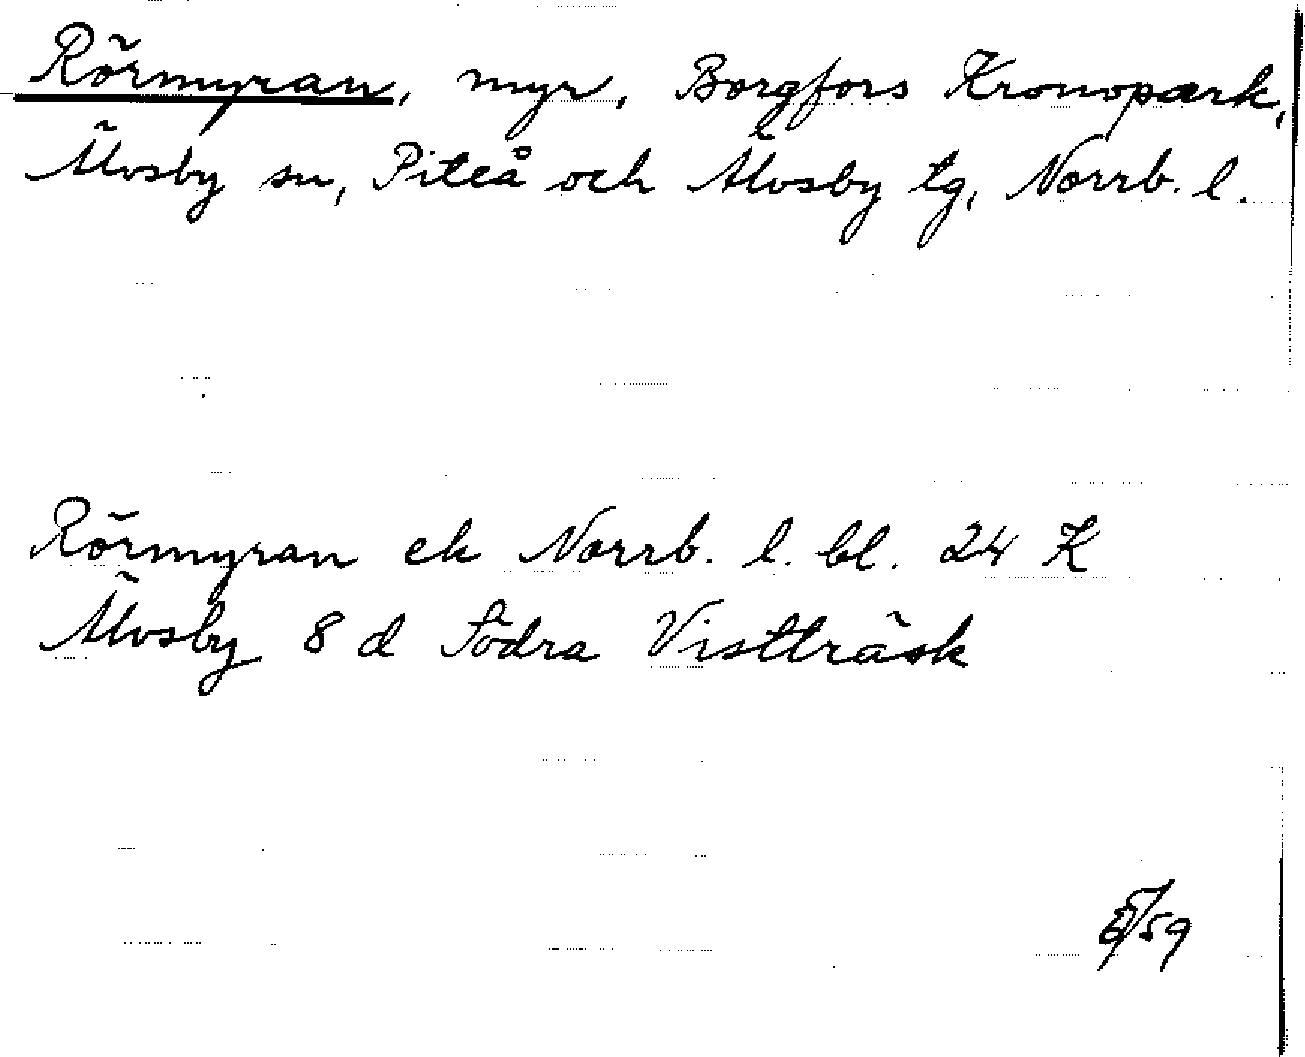 Rörmyran, myr, Borgfors Kronopark,
Älvsby sn, Piteå och Älvsby tg, Norrb. l.
Rörmyran ek Norrb. l. bl. 24 K
Älvsby 8 d Södra Vistträsk